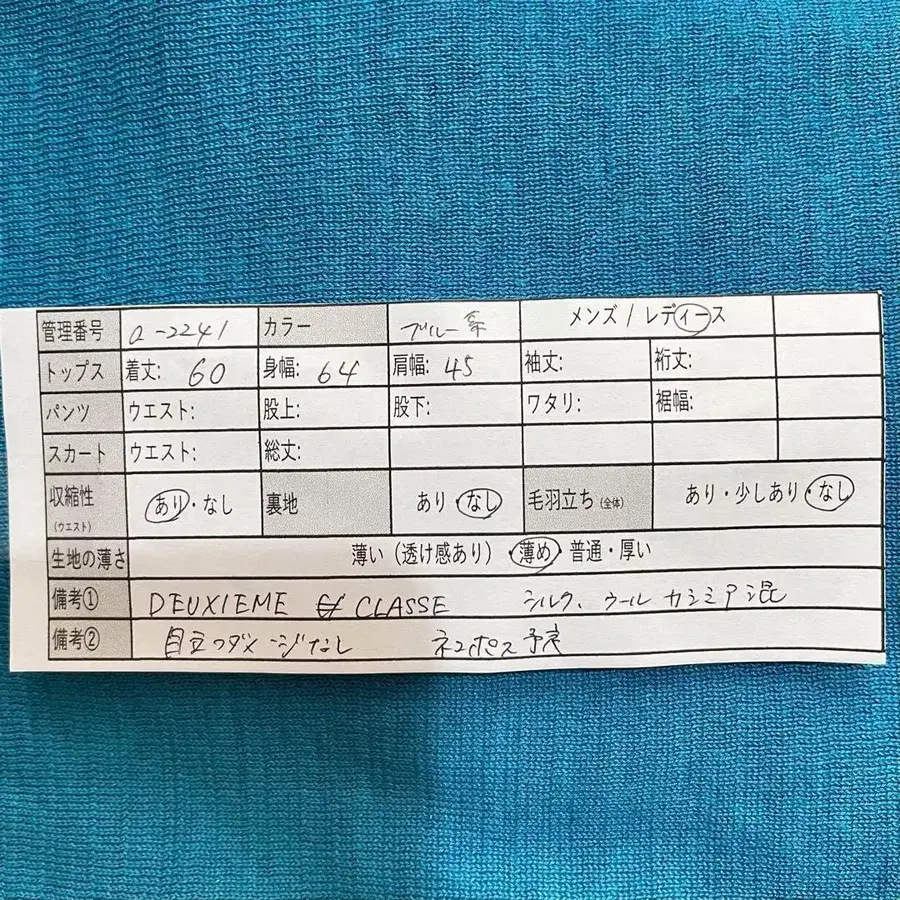 管理番号 a-2241 カラー ブルー系 メンズ / レディース
トップス 着丈: 60 身幅: 64 肩幅: 45 袖丈: 裄丈:
パンツ ウエスト: 股上: 股下: ワタリ: 裾幅:
スカート ウエスト: 総丈:
収縮性 (ウエスト) あり・なし 裏地 あり・なし 毛羽立ち (全体) あり・少しあり・なし
生地の薄さ 薄い (透け感あり)・薄め・普通・厚い
備考① DEUXIEME CLASSE シルク、ウール カシミア混
備考② 目立つダメージなし ネコポス予定